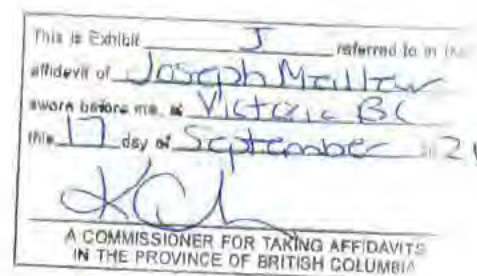 This is Exhibit J referred to in the
affidavit of Joseph
sworn before me, at Victoria BC
this 17 day of September 2
A COMMISSIONER FOR TAKING AFFIDAVITS
IN THE PROVINCE OF BRITISH COLUMBIA